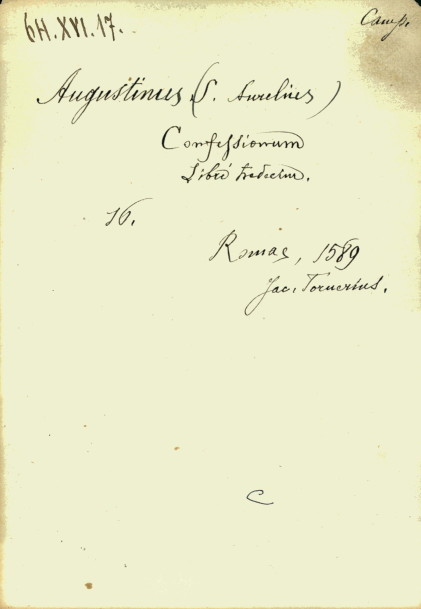 6H.XVI.17.
Camp.
Augustinus (S. Aurelius)
Confessionum
Libri tredecim.
16.
Romae, 1589
Jac. Tornerius.
C